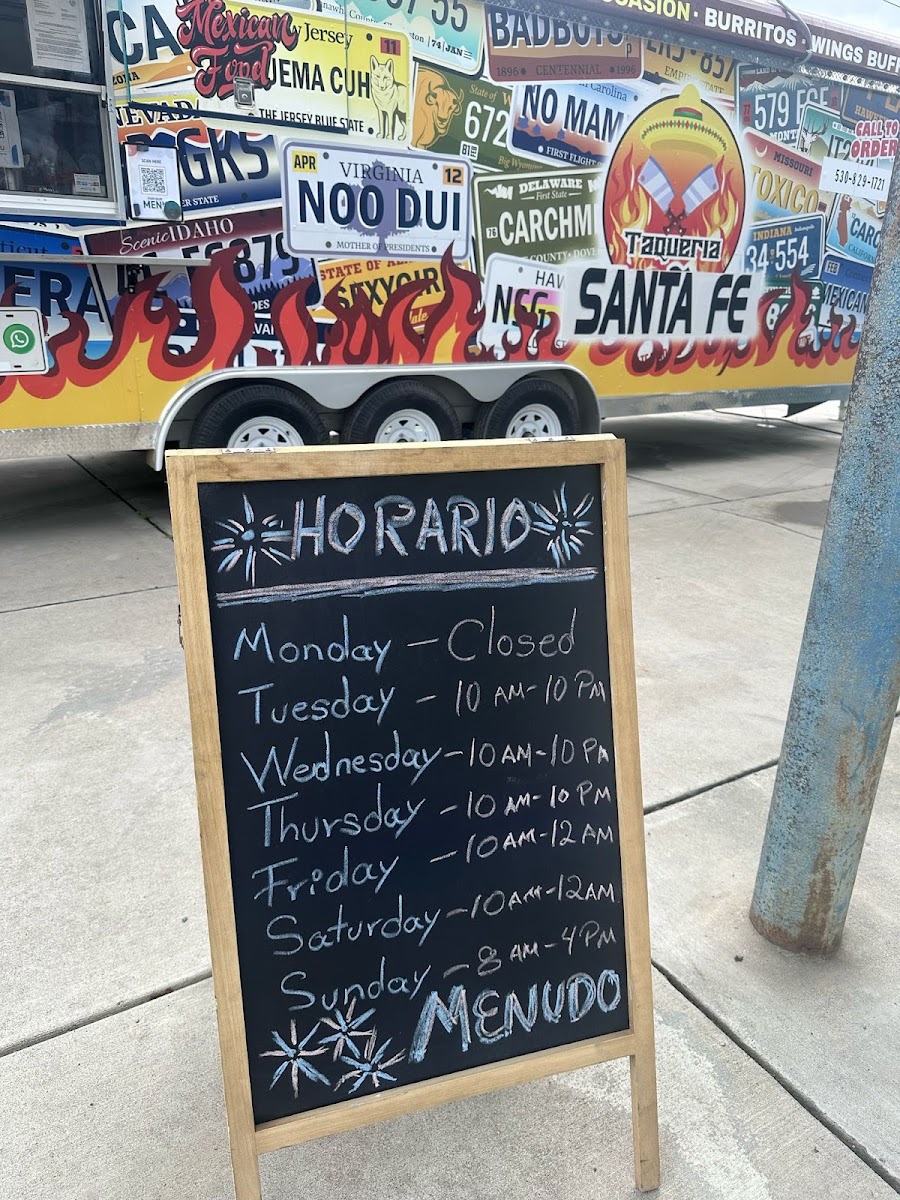 CASION · BURRITOS · WINGS BUFF
Mexican
Food
Jersey
11
UEMA CUH
THE JERSEY BLUE STATE
74 JAN
BADBOYS
1896 • CENTENNIAL • 1996
State of
672
NO MAM
FIRST FLIGHT
579
MONT
CALL TO
ORDER
530-829-1721
NEVAD
SCAN HERE
MENU
GKS
ER STATE
APR
VIRGINIA
12
NOO DUI
MOTHER OF PRESIDENTS
DELAWARE
First State
CARCHM
COUNTY · DOVE
MISSOURI
TOXICO
INDIANA
34 554
CALIFORNIA
CARC
Scenic IDAHO
879
OES
STATE OF
SEXYGIR
Taqueria
SANTA FE
ERA
MEXICAN
HORARIO
Monday - Closed
Tuesday - 10 AM - 10 PM
Wednesday - 10 AM - 10 PM
Thursday - 10 AM - 10 PM
Friday - 10 AM - 12 AM
Saturday - 10 AM - 12 AM
Sunday - 8 AM - 4 PM
MENUDO